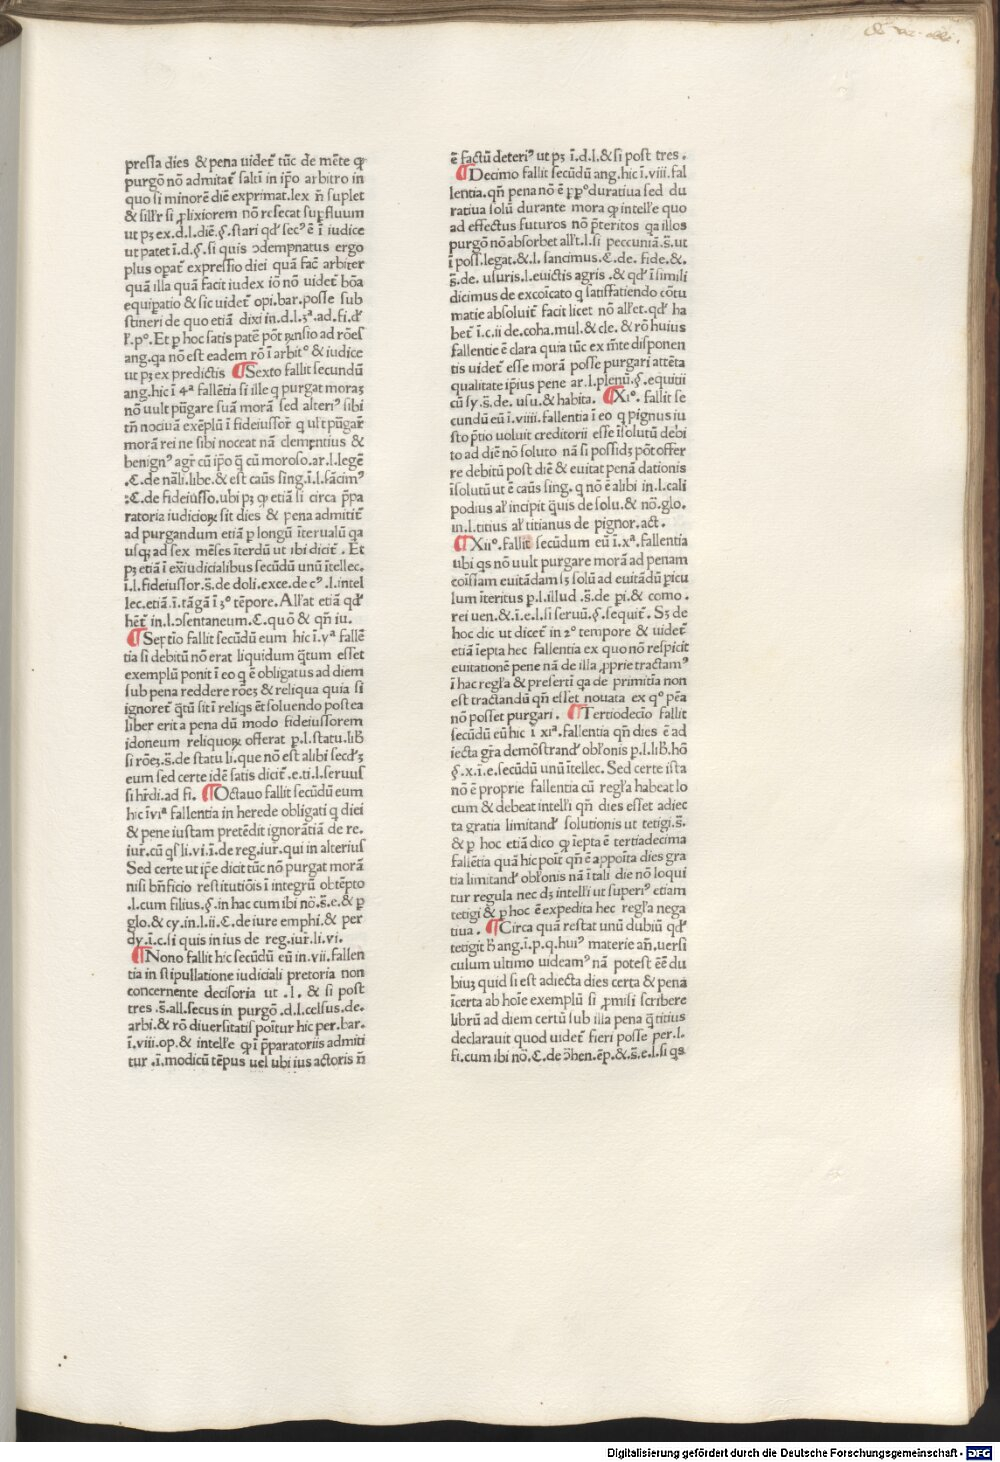 pressa dies & pena uidet̃ tũc de mẽte ꝙ
purgõ nõ admitat̃ saltĩ in ip̃o arbitro in
quo si minorẽ diẽ exprimat.lex ñ suplet
& sill'r si ꝓlixiorem nõ resecat supfluum
ut pȝ ex.d.l.diẽ.§.stari qd' sec⁹ ẽ ĩ iudice
ut patet ĩ.d.§.si quis ↄdempnatus ergo
plus opat̃ expressio diei quã fac̃ arbiter
quã illa quã facit iudex iõ nõ uidet̃ bõa
equipatio & sic uidet̃ opi.bar.posse sub
stineri de quo etiã dixi in.d.l.3ª.ad.fi.d'
r̃.pº. Et p hoc satis patẽ põt rñsio ad rões
ang.qa nõ est eadem rõ ĩ arbitº & iudice
ut pȝ ex predictis ¶Sexto fallit secundũ
ang.hic ĩ 4ª fallẽtia si ille q purgat moraȝ
nõ uult pũgare suã morã sed alteri⁹ sibi
tñ nociuã exẽplũ ĩ fideiussor̃ q ul't pũgar̃
morã rei ne sibi noceat nã clementius &
benign⁹ agr̃ cũ ip̃o q̃ cũ moroso.ar.l.legẽ
.C.de nãli.libe.& est caũs sĩng.ĩ.l.sãcim⁹
:C.de fideiusso.ubi pȝ ꝙ etiã si circa p̃pa
ratoria iudicioꝝ sit dies & pena admitit̃
ad purgandum etiã p longũ ĩterualũ qa
usqȝ ad sex mẽses ĩterdũ ut ibi dicit̃ . Et
pȝ etiã ĩ exiudicialibus secũdũ unũ ĩtellec.
ĩ.l.fideiussor.s̃.de doli.exce.de c⁹ .l.intel
lec.etiã.ĩ.tãgã ĩ 3º tẽpore. All'at etiã qd'
hẽt̃ in.l.ↄsentaneum.C.quõ & qñ iu.
¶Septio fallit secũdũ eum hic ĩ.vª fallẽ
tia si debitũ nõ erat liquidum q̃tum esset
exemplũ ponit ĩ eo q ẽ obligatus ad diem
sub pena reddere rõeȝ & reliqua quia si
ignoret̃ q̃tũ sit ĩ reliqs ẽt soluendo postea
liber erit a pena dũ modo fideiussorem
idoneum reliquoꝝ offerat p.l.statu.lib̃
si rõeȝ.s̃.de statu li.que nõ est alibi secd'ȝ
eum sed certe idẽ satis dicit̃ .e.ti.l.seruus
si hr̃di.ad fi. ¶Octauo fallit secũdũ eum
hic ĩviª fallentia in herede obligati q diei
& pene iustam pretẽdit ignorãtiã de re.
iur̃.cũ qs̃ li.vi.ĩ.de reg.iur.qui in alterius
Sed certe ut ip̃e dicit tũc nõ purgat morã
nisi bñficio restitutiõis ĩ integrũ obtẽpto
.l.cum filius.§.in hac cum ibi nõ.s̃.e.& p
glo.& cy.in.l.ii.C.de iure emphi.& per
dy.ĩ.c.si quis in ius de reg.iur̃.li.vi.
¶Nono fallit hic secũdũ eũ in.vii.fallen
tia in stipullatione iudiciali pretoria non
concernente decisoria ut .l. & si post
tres .s̃.all.secus in purgõ .d.l.celsus.de.
arbi.& rõ diuersitatis poĩtur hic per.bar.
ĩ.viii.op.& intelle ꝙ ĩ p̃paratoriis admiti
tur .ĩ.modicũ tẽpus uel ubi ius actoris ñ
ẽ factũ deteri⁹ ut pȝ ĩ.d.l.& si post tres .
¶Decimo fallit secũdũ ang.hic ĩ.viii.fal
lentia.qñ pena nõ ẽ ꝑpºduratiua sed du
ratiua solũ durante mora ꝙ intell'e quo
ad effectus futuros nõ p̃teritos qa illos
purgõ nõ absorbet all't.l.si peccuniã.s̃.ut
ĩ poss̃.legat.& l. sancimus.C.de. fide.&.
s̃.de. usuris.l.euictis agris . & qd' ĩ simili
dicimus de excoĩcato q satissatiendo cõtu
matie absoluit̃ facit licet nõ all'et.qd' ha
bet̃ ĩ.c.ii de.coha.mul.& cle. & rõ huius
fallentie ẽ clara quia tũc ex mẽte disponen
tis uidet̃ esse morã posse purgari attẽta
qualitate ip̃ius pene ar.l.plenũ.§.equitii
cũ sy.s̃.de. usu.& habita. ¶Xiº. fallit se
cundũ eũ ĩ.viiii.fallentia ĩ eo q pignus iu
sto p̃tio uoluit creditorii esse ĩsolutũ debi
to ad diẽ nõ soluto nã si possidȝ põt offer
re debitũ post diẽ & euitat penã dationis
ĩsolutũ ut ẽ caũs sing. q nõ ẽ alibi in.l.cali
podius al' incipit q̃uis de solu.& nõ.glo.
in.l.titius al' titianus de pignor.act .
¶Xiiº.fallit secũdum eũ ĩ.xª.fallentia
ubi qs nõ uult purgare morã ad penam
coĩsiam euitãdam sȝ solũ ad euitãdũ picu
lum ĩteritus p.l.illud .s̃.de pi.& como .
rei uen.& .ĩ.e.l.si seruũ.§.sequit̃. Sȝ de
hoc dic ut dicet̃ in 2º tempore & uidet̃
etiã ĩepta hec fallentia ex quo nõ respicit
euitationẽ pene nã de illa ꝓprie tractam⁹
ĩ hac regl'a & preserti qa de primitia non
est tractandũ qñ esset nouata ex qº pẽa
nõ posset purgari . ¶Tertiodecio fallit
secũdũ eũ hic ĩ xiª.fallentia qñ dies ẽ ad
iecta gr̃a demõstrand' obl'onis p.l.lib̃.hõ
§.x.ĩ.e.secũdũ unũ ĩtellec. Sed certe ista
nõ ẽ proprie fallentia cũ regl'a habeat lo
cum & debeat intell'i qñ dies esset adiec
ta gratia limitand' solutionis ut tetigi.s̃.
& p hoc etiã dico ꝙ ĩepta ẽ tertiadecima
fallẽtia quã hic poĩt qñ ẽ appoĩta dies gra
tia limitand' obl'onis nã ĩ tali die nõ loqui
tur regula nec dȝ intell'i ut superi⁹ etiam
tetigi & p hoc ẽ expedita hec regl'a nega
tiua . ¶Circa quã restat unũ dubiũ qd'
tetigit h̃ ang.ĩ.p.q.hui⁹ materie añ.uersi
culum ultimo uideam⁹ nã potest ẽẽ du
biuȝ quid si est adiecta dies certa & pena
ĩcerta ab hoĩe exemplũ si ꝓmisi scribere
librũ ad diem certũ sub illa pena q̃ titius
declarauit quod uidet̃ fieri posse per.l.
fi.cum ibi nõ. C.de ↄ̃hen.ẽp.& s̃.e.l.si qs
Digitalisierung gefördert durch die Deutsche Forschungsgemeinschaft - DFG